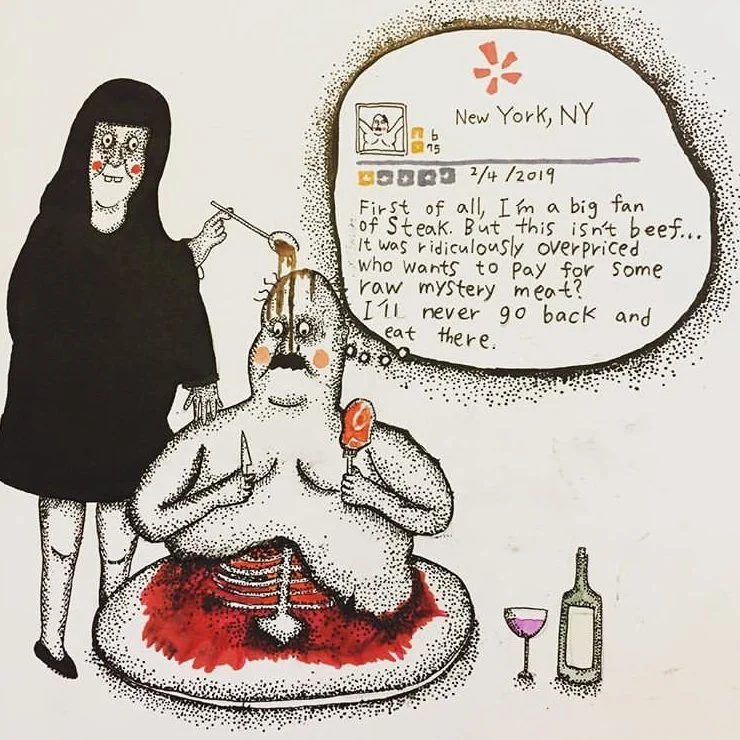 New York, NY
6
75
2/4/2019
First of all, I'm a big fan
of Steak. But this isn't beef...
It was ridiculously overpriced
who wants to pay for some
raw mystery meat?
I'll never go back and
eat there.